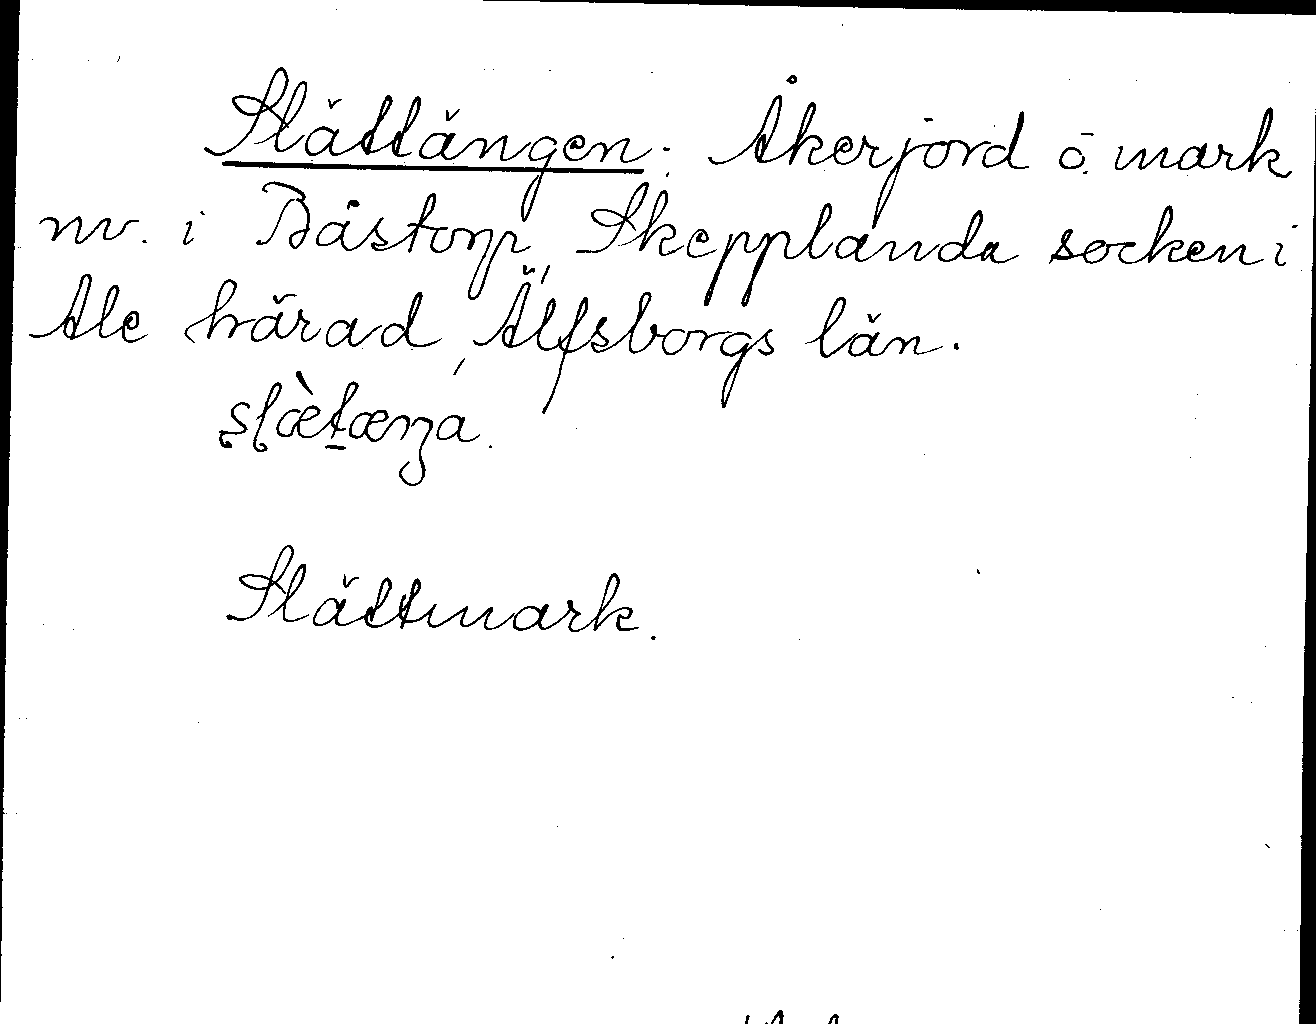 Slättängen: Åkerjord o. mark
nv. i Båstorp, Skepplanda socken i
Ale härad, Älfsborgs län.
Slättmark.